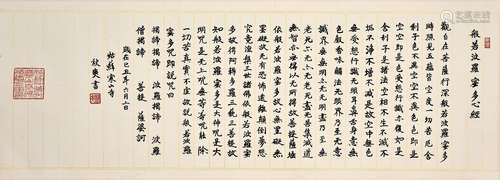 般若波羅蜜多心經
觀自在菩薩行深般若波羅蜜多
時照見五蘊皆空度一切苦厄舍
利子色不異空空不異色色即是
空空即是色受想行識亦復如是
舍利子是諸法空相不生不滅不
垢不淨不增不減是故空中無色
無受想行識無眼耳鼻舌身意無
色聲香味觸法無眼界乃至無意
識界無無明亦無無明盡乃至無
老死亦無老死盡無苦集滅道
無智亦無得以無所得故菩提薩埵
依般若波羅蜜多故心無罣礙無
罣礙故無有恐怖遠離顛倒夢想
究竟涅槃三世諸佛依般若波羅蜜
多故得阿耨多羅三藐三菩提故
知般若波羅蜜多是大神咒是大
明咒是無上咒是無等等咒能除
一切苦真實不虛故說般若波羅
蜜多咒即說咒曰
揭諦揭諦 波羅揭諦 波羅
僧揭諦 菩提 薩婆訶
歲在己丑年六月一日
姑蘇寒山寺
秋爽書